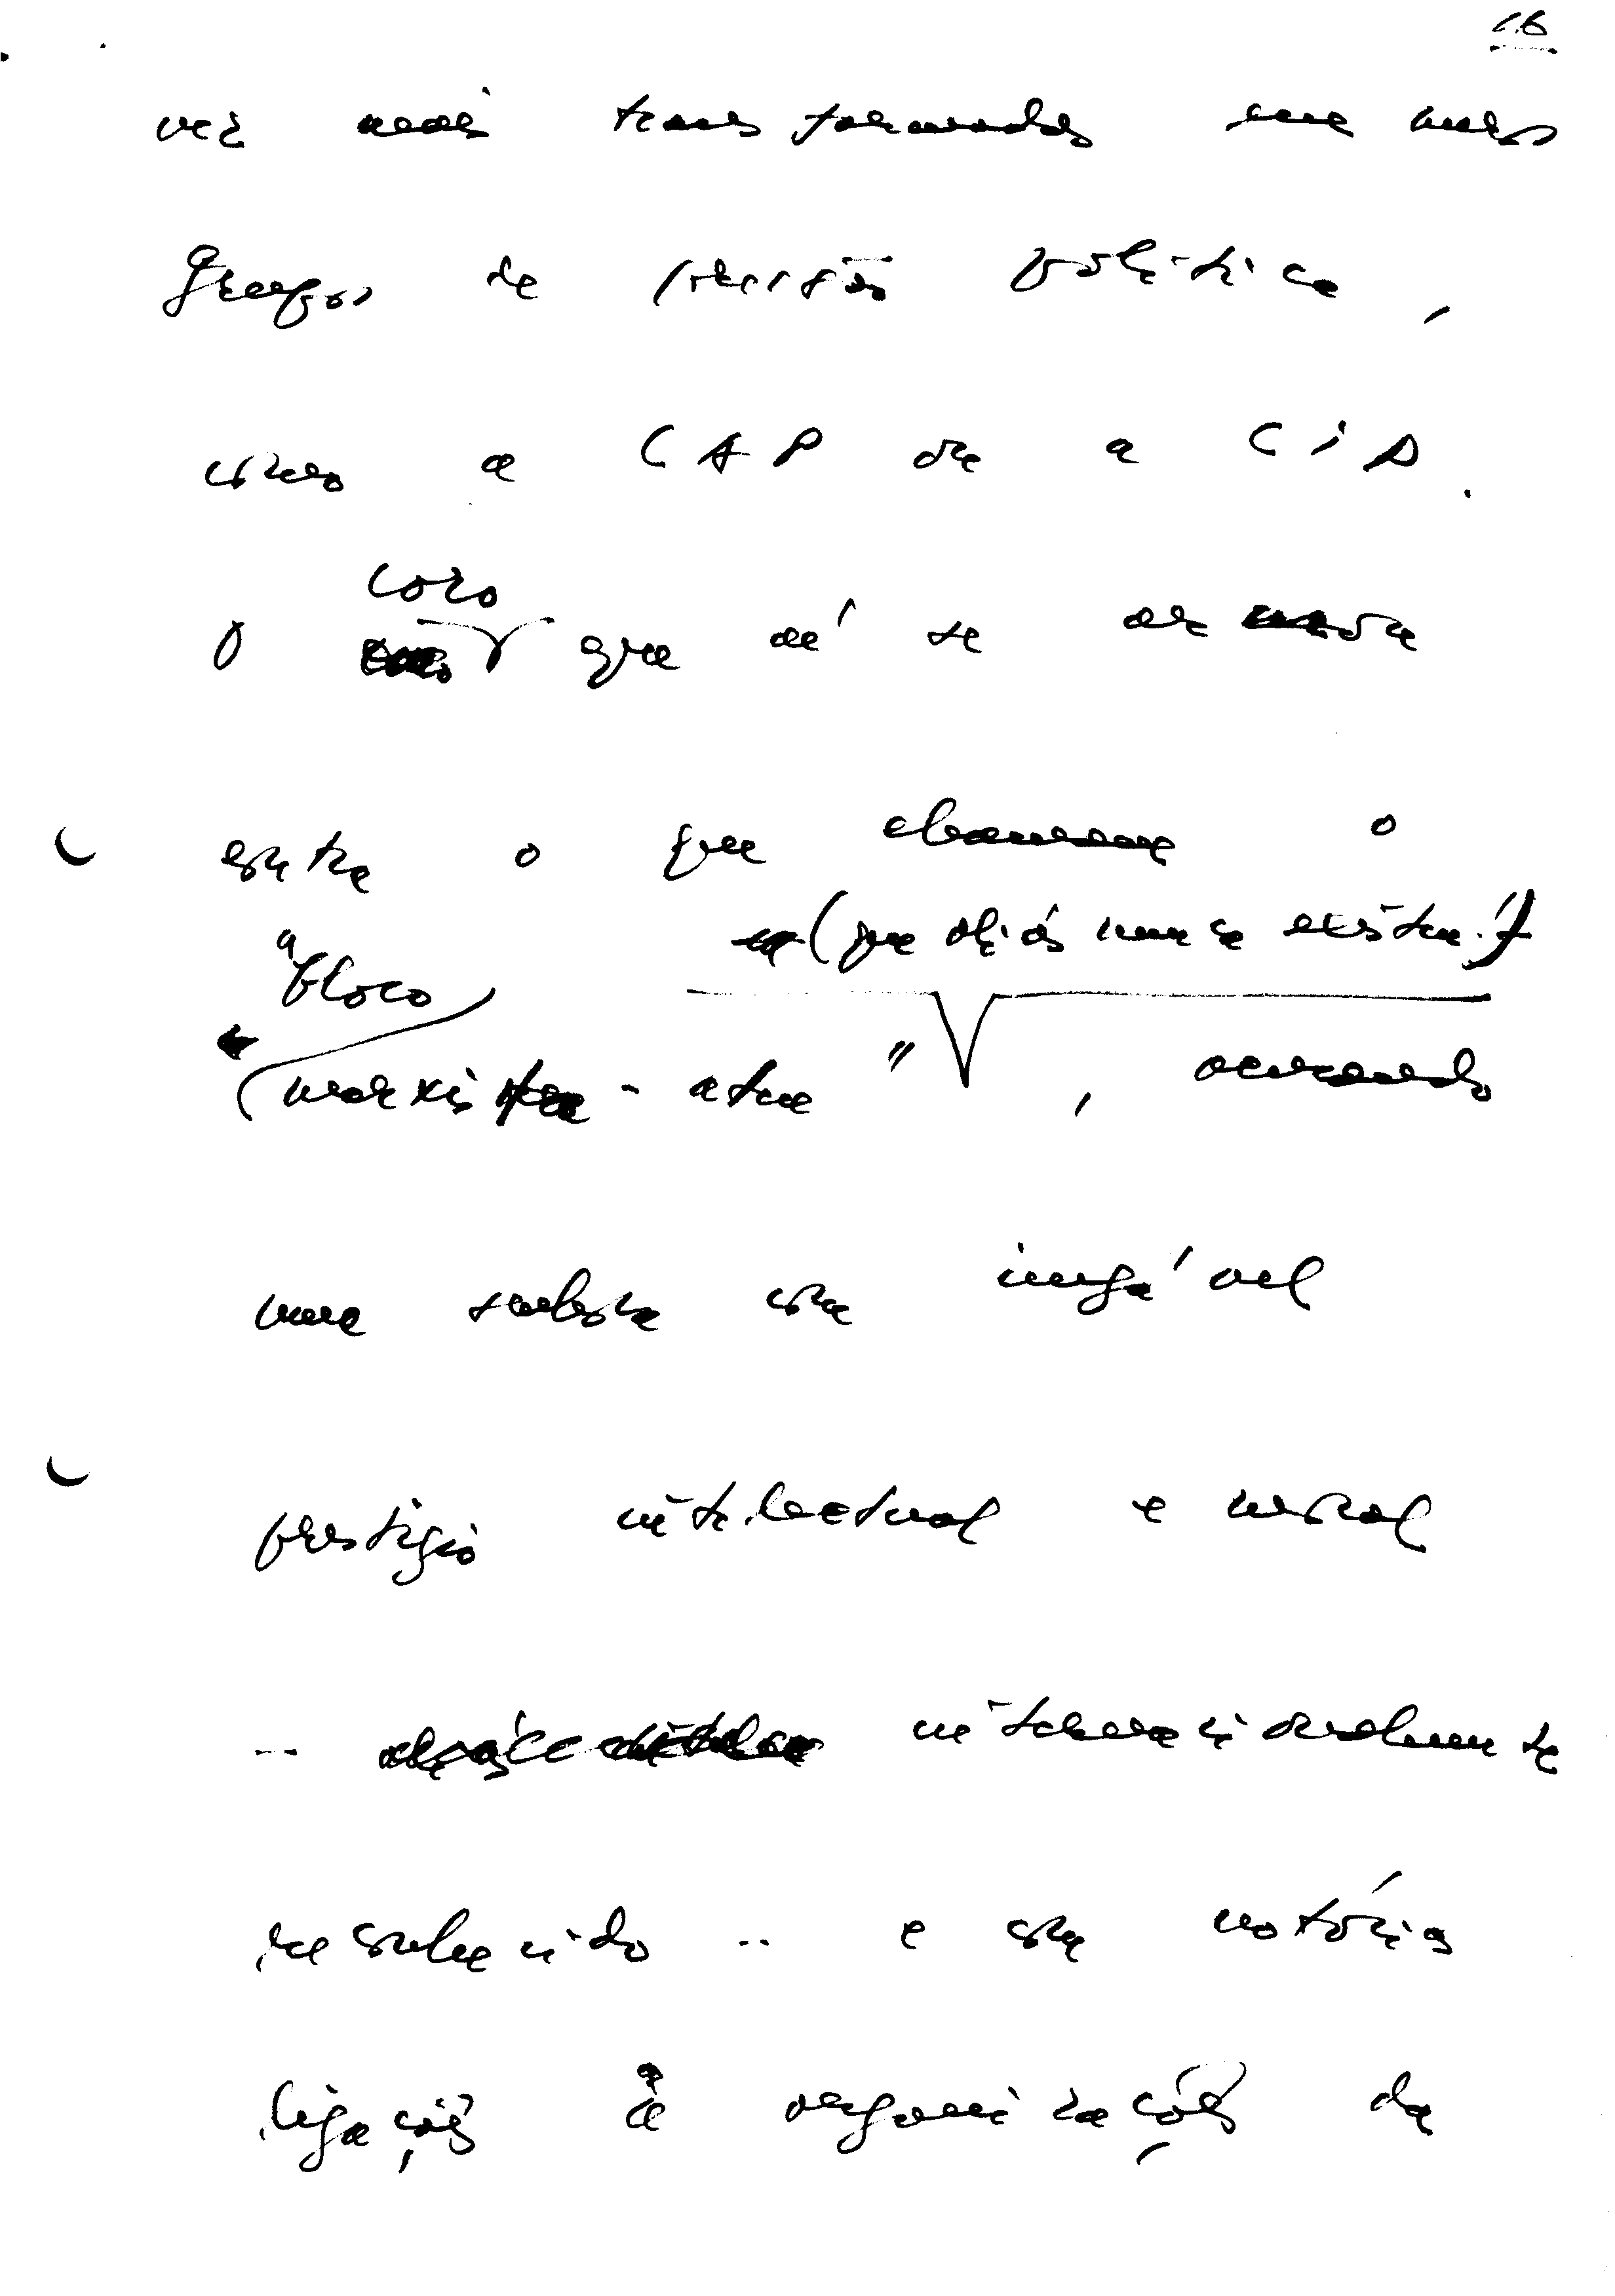 16
vez mais transformados em meros
grupos de pressão política,
como a CAP ou a CIP.
coro
O que aí se
contra o que chamam o
(que aliás nunca existiu!)
"bloco
marxista-ateu", acusando
uma senhora com inegável
prestígio intelectual e moral
-- internacionalmente
reconhecido -- e com notórias
ligações a organizações da